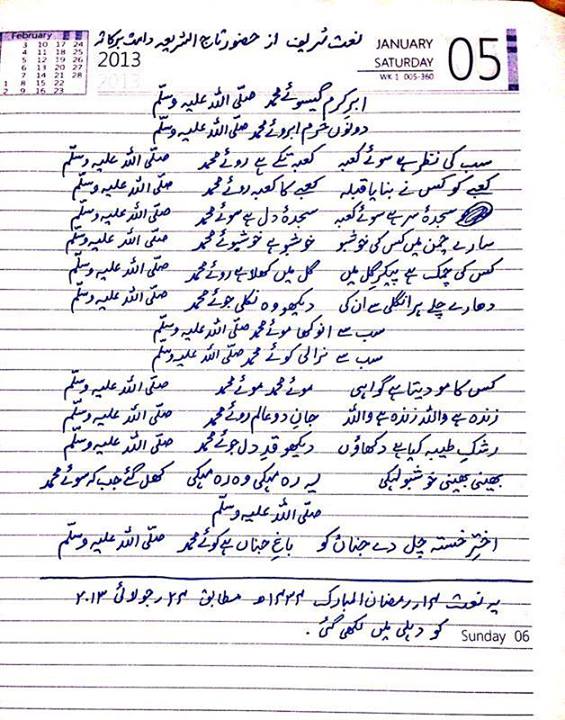 February
3 10 17 24
4 11 18 25
5 12 19 26
6 13 20 27
7 14 21 28
1 8 15 22
2 9 16 23
نعت شریف از حضور تاج الشریعہ دامت برکاتہ
2013
JANUARY
SATURDAY
WK 1 005-360
05
ابرِ کرم گیسوئے محمد صلّی اللہ علیہ وسلّم
دونوں حرم ابروئے محمد صلّی اللہ علیہ وسلّم
سب کی نظر ہے سوئے کعبہ کعبہ تکے ہے روئے محمد صلّی اللہ علیہ وسلّم
کعبے کو کس نے بنایا قبلہ کعبے کا کعبہ روئے محمد صلّی اللہ علیہ وسلّم
سجدۂ سر ہے سوئے کعبہ سجدۂ دل ہے سوئے محمد صلّی اللہ علیہ وسلّم
سارے چمن میں کس کی خوشبو خوشبو ہے خوشبوئے محمد صلّی اللہ علیہ وسلّم
کس کی چمک ہے پیکرِ گل میں گل میں کھلا ہے روئے محمد صلّی اللہ علیہ وسلّم
دھارے چلے ہر انگلی سے ان کی دیکھو وہ نکلی جوئے محمد صلّی اللہ علیہ وسلّم
سب سے انوکھا موئے محمد صلّی اللہ علیہ وسلّم
سب سے نرالی کوئے محمد صلّی اللہ علیہ وسلّم
کس کا مو دیتا ہے گواہی موئے محمد موئے محمد صلّی اللہ علیہ وسلّم
زندہ ہے واللہ زندہ ہے واللہ جانِ دو عالم روئے محمد صلّی اللہ علیہ وسلّم
رشکِ طیبہ کیا ہے دکھاؤں دیکھو قدِ دل جوئے محمد صلّی اللہ علیہ وسلّم
بھینی بھینی خوشبو لہکی یہ رہ مہکی وہ رہ مہکی کھل گئے جب کہ موئے محمد
صلّی اللہ علیہ وسلّم
اخترِ خستہ چل دے جناں کو باغِ جناں ہے کوئے محمد صلّی اللہ علیہ وسلّم
یہ نعت ۱۴؍ رمضان المبارک ۱۴۳۴ھ مطابق ۲۴؍ جولائی ۲۰۱۳
کو دہلی میں لکھی گئی۔
Sunday 06